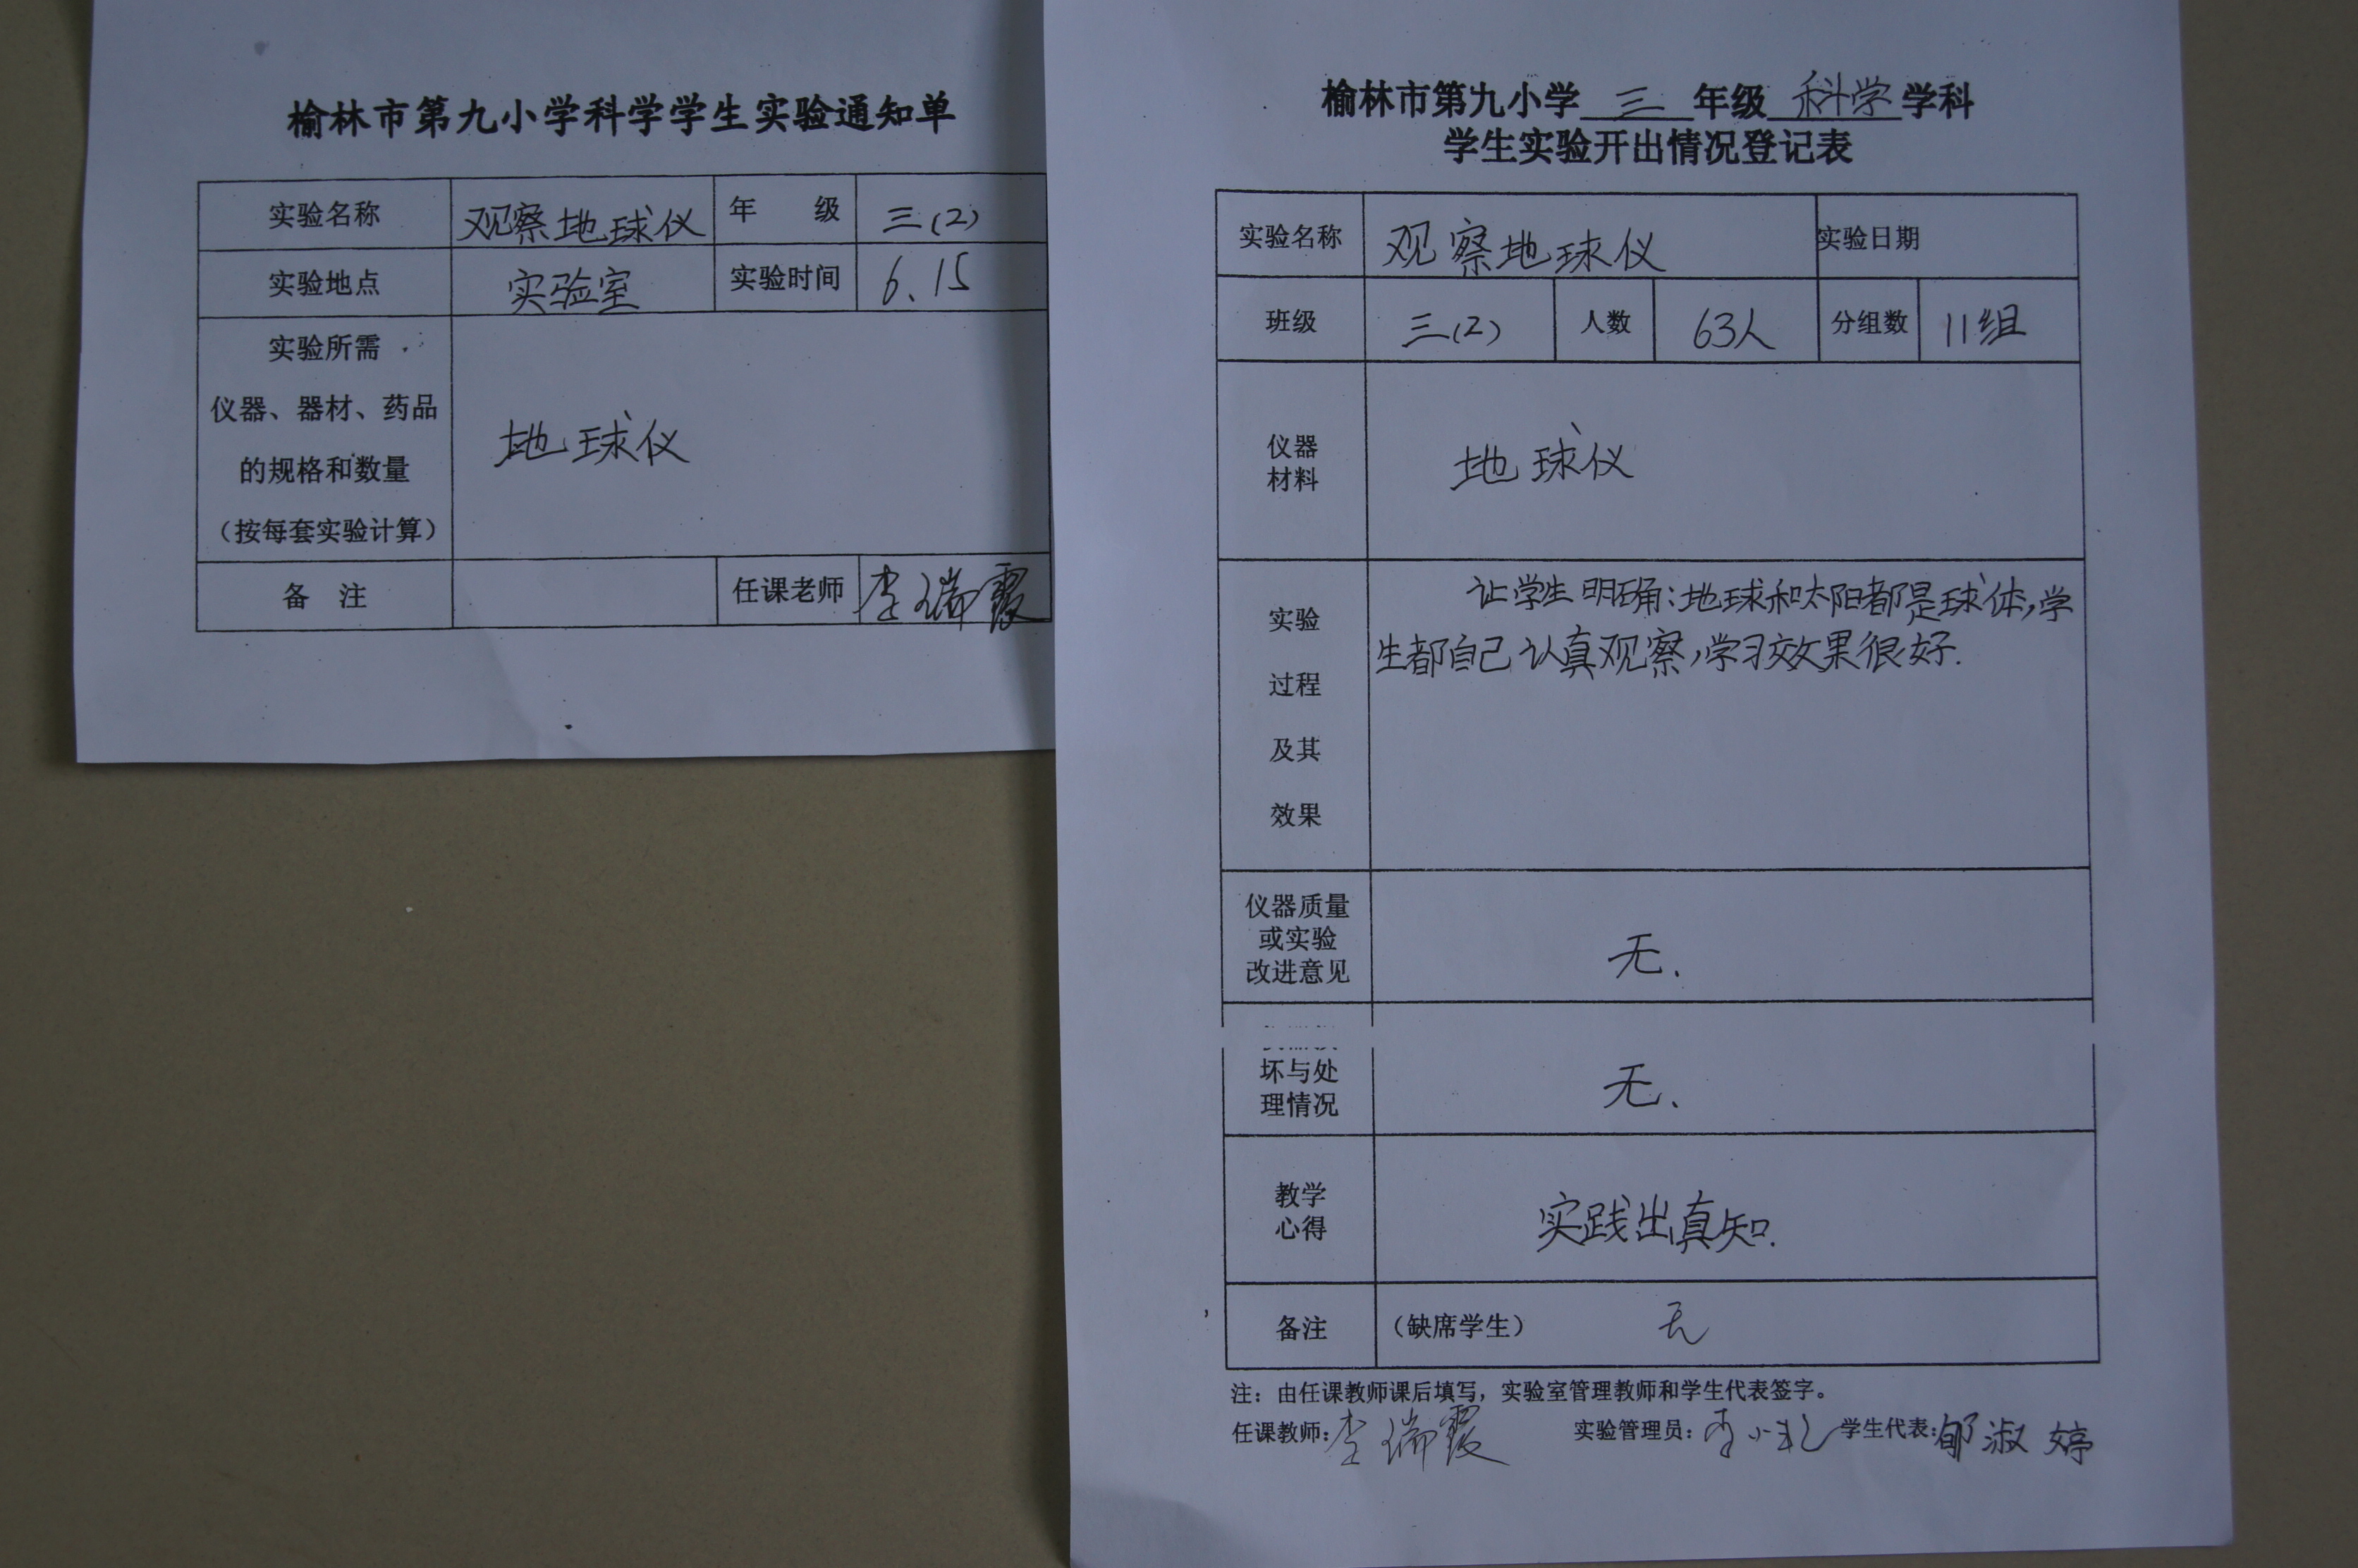 榆林市第九小学科学学生实验通知单
实验名称 观察地球仪 年 级 三(2)
实验地点 实验室 实验时间 6.15
实验所需
仪器、器材、药品
的规格和数量
(按每套实验计算)
地球仪
备 注 任课老师 李瑞霞
榆林市第九小学 三 年级 科学 学科
学生实验开出情况登记表
实验名称 观察地球仪 实验日期
班级 三(2) 人数 63人 分组数 11组
仪器
材料
地球仪
实验
过程
及其
效果
让学生明确:地球和太阳都是球体,学
生都自己认真观察,学习效果很好.
仪器质量
或实验
改进意见
无.
坏与处
理情况
无、
教学
心得
实践出真知.
备注 (缺席学生) 无
注:由任课教师课后填写,实验室管理教师和学生代表签字。
任课教师:李瑞霞 实验管理员: 学生代表:郇淑婷